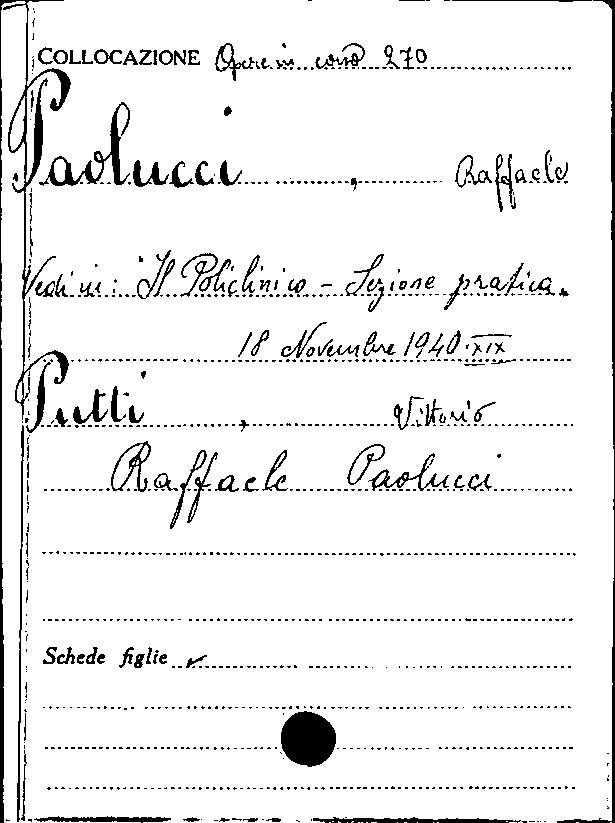 COLLOCAZIONE Opere in corso 270
Paolucci, Raffaele
Vedi in: "Il Policlinico - Sezione pratica.
18 Novembre 1940 XIX
Putti, Vittorio
Raffaele Paolucci
Schede figlie